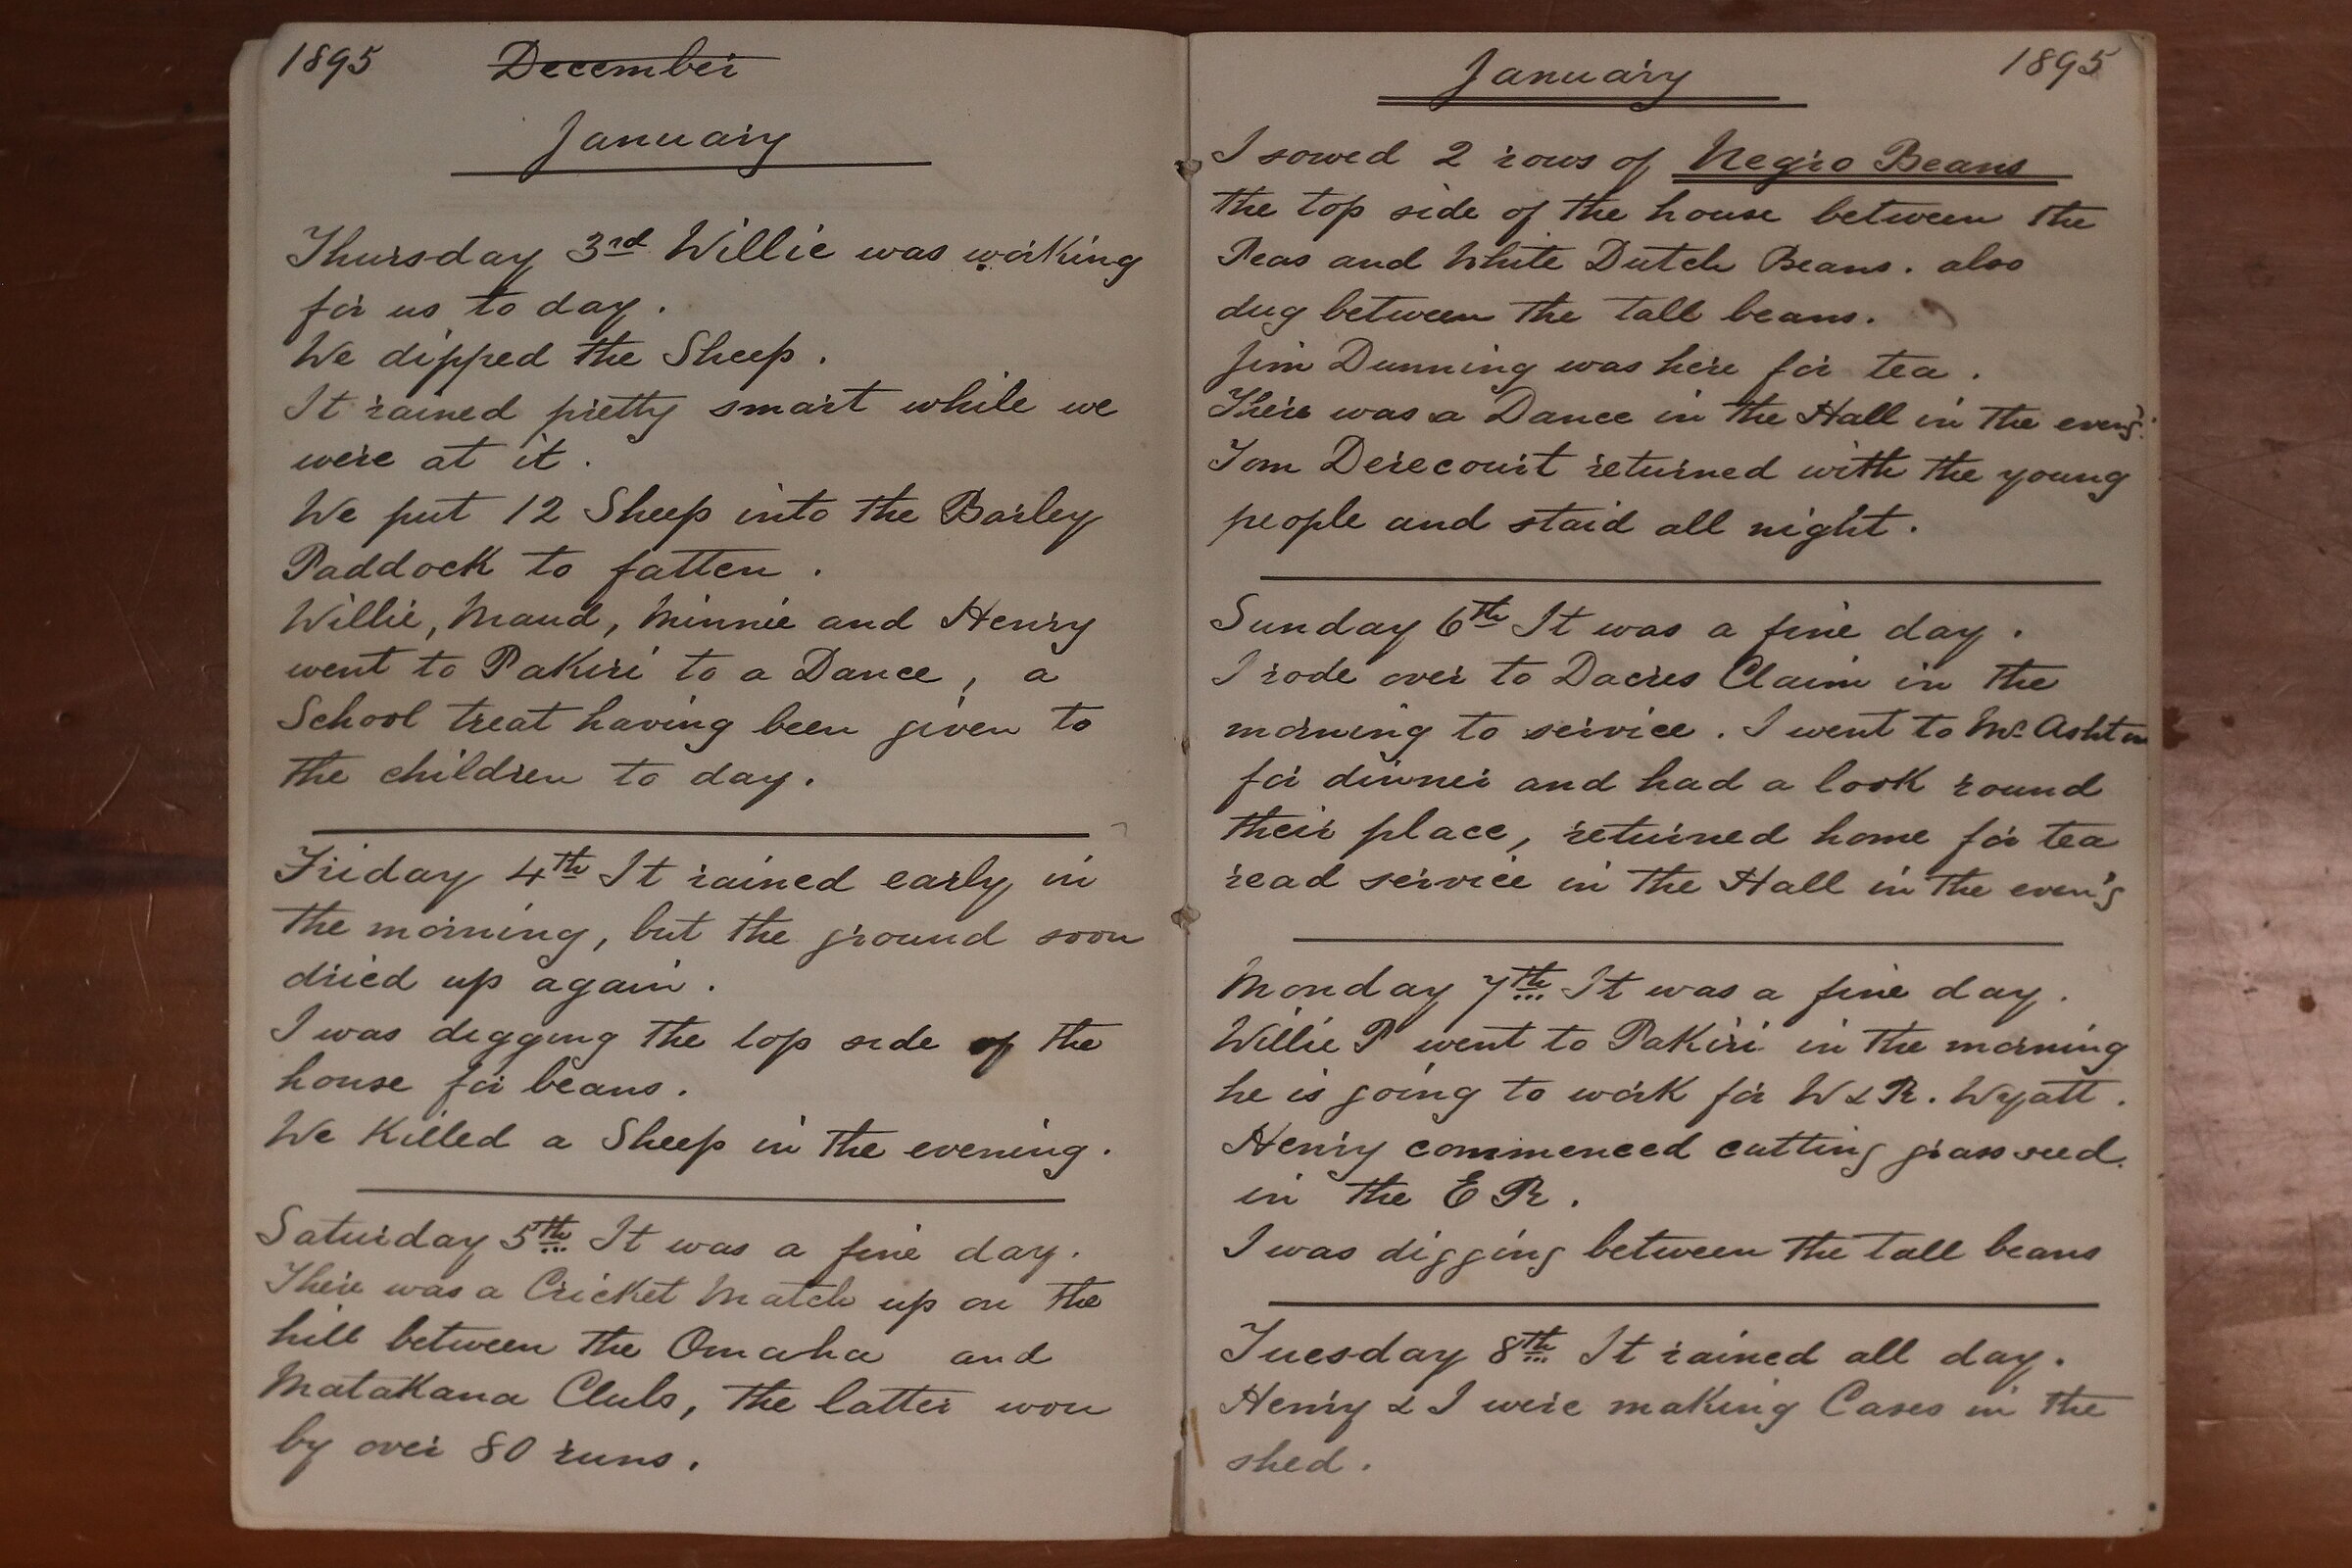 1895 December
January
Thursday 3rd Willie was working
for us to day.
We dipped the Sheep.
It rained pretty smart while we
were at it.
We put 12 Sheep into the Barley
Paddock to fatten.
Willie, Maud, Minnie and Henry
went to Pakiri to a Dance, a
School treat having been given to
the children to day.
Friday 4th It rained early in
the morning, but the ground soon
dried up again.
I was digging the top side of the
house for beans.
We Killed a Sheep in the evening.
Saturday 5th It was a fine day.
There was a Cricket Match up on the
hill between the Omaha and
Matakana Clubs, the latter won
by over 80 runs.
January 1895
I sowed 2 rows of Negro Beans
the top side of the house between the
Peas and White Dutch Beans. also
dug between the tall beans.
Jim Dunning was here for tea.
There was a Dance in the Hall in the eveng.
Tom Derecourt returned with the young
people and staid all night.
Sunday 6th It was a fine day.
I rode over to Dacres Claim in the
morning to service. I went to Mr Ashton
for dinner and had a look round
their place, returned home for tea
read service in the Hall in the even'g
Monday 7th It was a fine day.
Willie P went to Pakiri in the morning
he is going to work for W & R. Wyatt.
Henry commenced cutting grass seed.
in the E R.
I was digging between the tall beans
Tuesday 8th It rained all day.
Henry & I were making Cases in the
shed.